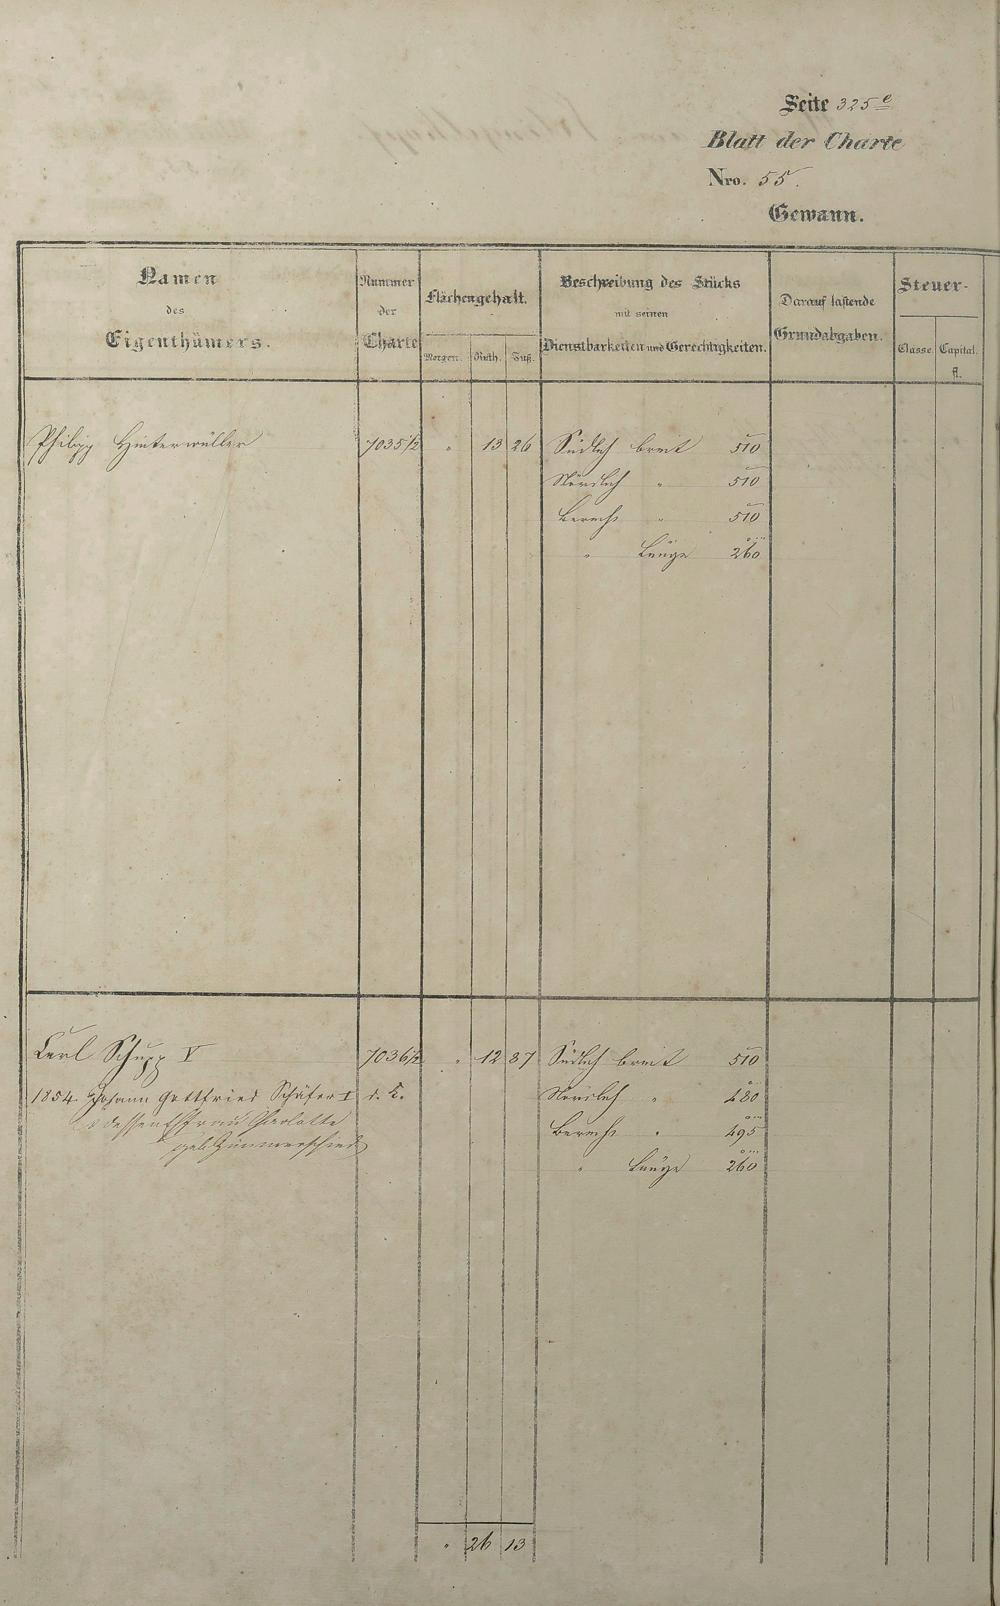 Seite 325 e
Blatt der Charte
Nro. 55.
Gewann.
Namen
des
Eigenthümers.
Nummer
der
Charte
Flächengehalt.
Morgen. Ruth. Fuß.
Beschreibung des Stücks
mit seinen
Dienstbarkeiten und Gerechtigkeiten.
Darauf lastende
Grundabgaben.
Steuer-
Classe. Capital.
fl.
Philipp Hinterwüller 7035½ " 13 26 Südlich breit 510
Nördlich " 510
Berecht " 510
" Länge 260
Carl Schupp V 7036½ " 12 87 Südlich breit 510
1854. Johann Gottfried Schäfer I d. K. Nördlich " 480
& dessen Ehfrau Charlotte Berecht " 495
geb. Zimmerschied " Länge 260
" 26 13